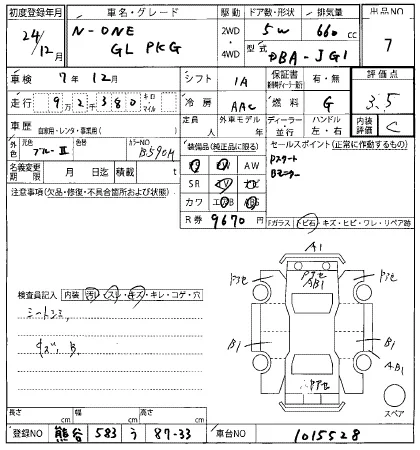 初度登録年月 車名・グレード 駆動 ドア数・形状 排気量 出品NO
24/12月 N-ONE 2WD 5W 660 cc 7
GL PKG 4WD 型式 DBA-JG1
車検 7年12月 シフト IA 保証書 有・無 評価点
走行 9万2千380 キロ・マイル 冷房 AAC 燃料 G 3.5
車歴 自家用・レンタ・事業用( ) 定員 人 外車モデル 年 ディーラー 並行 ハンドル 左・右 内装評価 C
外色 元色 ブルーⅡ 色替 カラーNO B590M 装備品(純正品に限る) セールスポイント(正常に作動するもの)
名義変更期限 月 日迄 積載 t AW Pスタート
SR Bモニター
注意事項(欠品・修復・不具合箇所および状態) カワ
R券 9670円
Fガラス トビ石・キズ・ヒビ・ワレ・リペア跡
A1
ドアセ AB1 ドアセ
検査員記入 内装 汚レ・スレ・キズ・キレ・コゲ・穴
シートシミ,
キズ, B,
B1 B1
AB1
スペア
長さ cm 幅 cm 高さ cm
登録NO 熊谷 583 う 87-33 車台NO 1015528